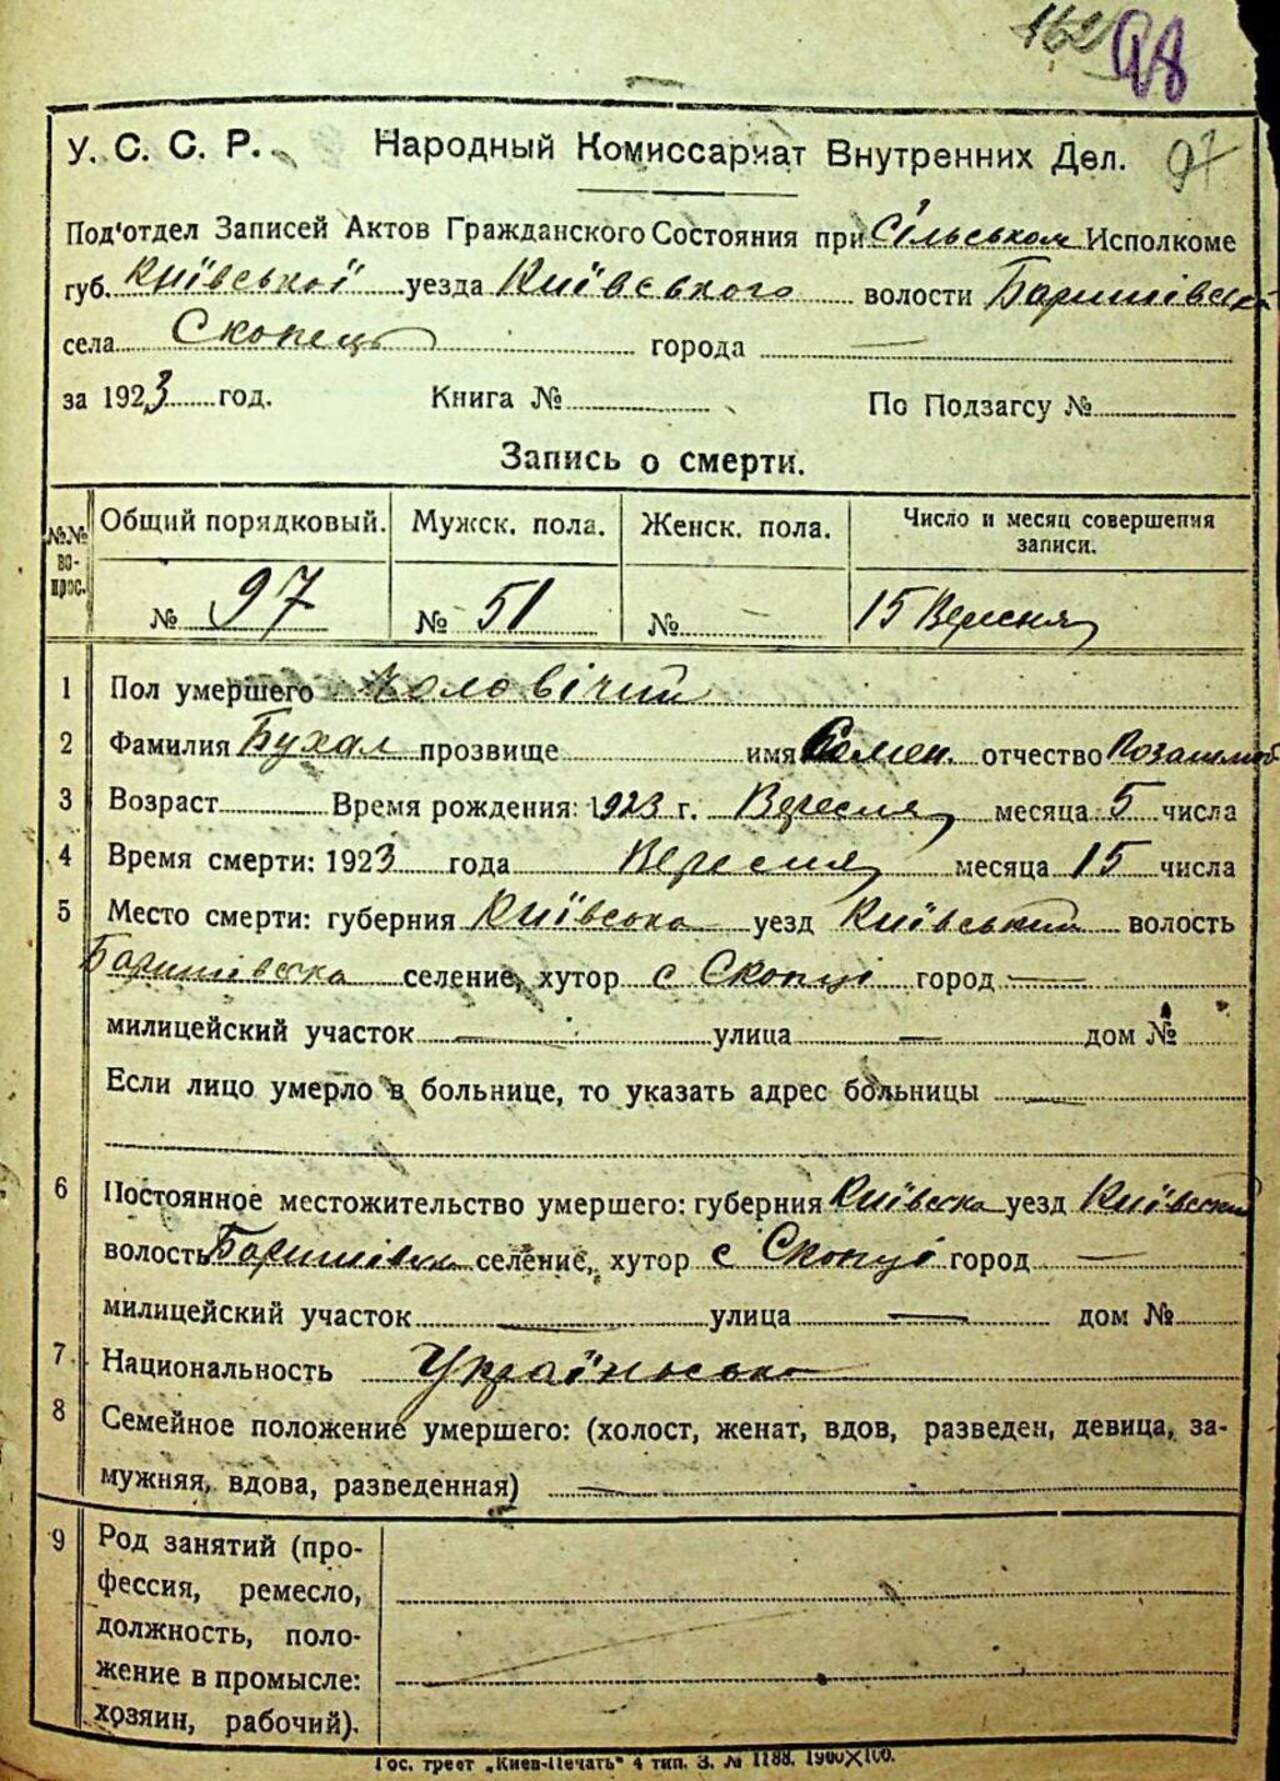 162 98
У. С. С. Р. Народный Комиссариат Внутренних Дел. 97
Под'отдел Записей Актов Гражданского Состояния при Сільськом Исполкоме
губ. Київської уезда Київського волости Баришівськ
села Скопець города —
за 1923 год. Книга № По Подзагсу №
Запись о смерти.
№№ во-прос. Общий порядковый. Мужск. пола. Женск. пола. Число и месяц совершения записи.
№ 97 № 51 № — 15 Вересня
1 Пол умершего чоловічий
2 Фамилия Бухал прозвище имя Семен отчество
3 Возраст Время рождения: 1923 г. Вересня месяца 5 числа
4 Время смерти: 1923 года Вересня месяца 15 числа
5 Место смерти: губерния Київська уезд Київський волость
Баришівська селение, хутор с Скопці город —
милицейский участок — улица — дом №
Если лицо умерло в больнице, то указать адрес больницы —
6 Постоянное местожительство умершего: губерния Київська уезд Київський
волость Баришівська селение, хутор с Скопці город —
милицейский участок — улица — дом №
7 Национальность Українсько
8 Семейное положение умершего: (холост, женат, вдов, разведен, девица, за-
мужняя, вдова, разведенная) —
9 Род занятий (про-
фессия, ремесло,
должность, поло-
жение в промысле:
хозяин, рабочий).
Гос. трест „Киев-Печать" 4 тип. З. № 1188. 1900×100.